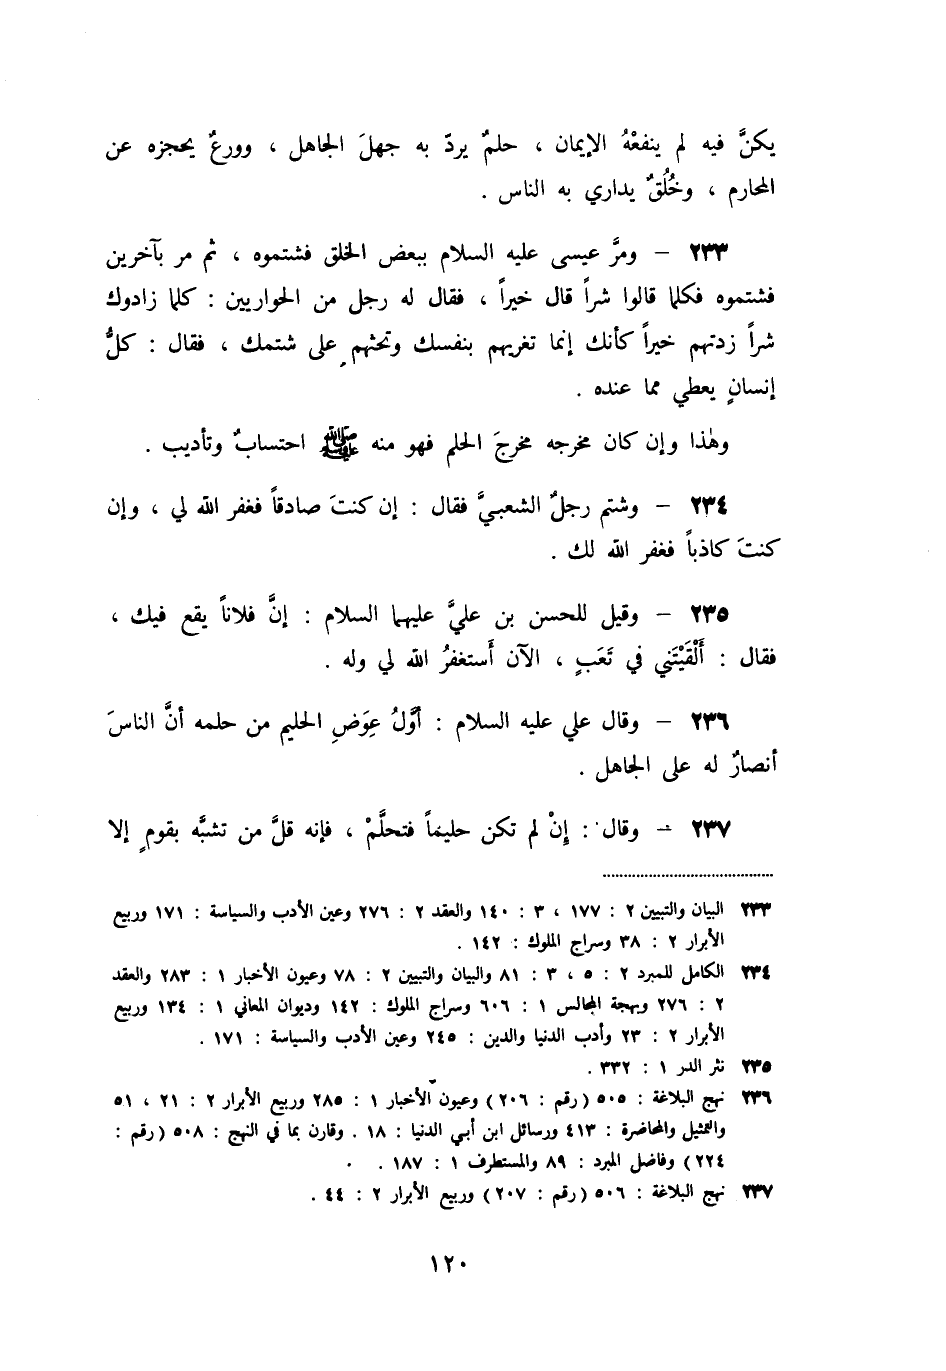 يكنَّ فيه لم ينفعْهُ الإيمان ، حلمٌ يردّ به جهلَ الجاهل ، وورعٌ يحجزه عن
المحارم ، وخُلُقٌ يداري به الناس .
٢٣٣ – ومرَّ عيسى عليه السلام ببعض الخلق فشتموه ، ثم مر بآخرين
فشتموه فكلما قالوا شراً قال خيراً ، فقال له رجل من الحواريين : كلما زادوك
شراً زدتهم خيراً كأنك إنما تغريهم بنفسك وتحثهم على شتمك ، فقال : كلُّ
إنسانٍ يعطي مما عنده .
وهذا وإن كان مخرجه مخرجَ الحلم فهو منه ﷺ احتسابٌ وتأديب .
٢٣٤ – وشتم رجلٌ الشعبيَّ فقال : إن كنتَ صادقاً فغفر الله لي ، وإن
كنتَ كاذباً فغفر الله لك .
٢٣٥ – وقيل للحسن بن عليَّ عليهما السلام : إنَّ فلاناً يقع فيك ،
فقال : أَلْقَيْتَني في تَعَبٍ ، الآن أَستغفرُ الله لي وله .
٢٣٦ – وقال علي عليه السلام : أوَّلُ عِوَضِ الحليم من حلمه أنَّ الناسَ
أنصارٌ له على الجاهل .
٢٣٧ – وقال : إِنْ لم تكن حليماً فتحلَّمْ ، فإنه قلَّ من تشبَّه بقومٍ إلا
٢٣٣ البيان والتبيين ٢ : ١٧٧ ، ٣ : ١٤٠ والعقد ٢ : ٢٧٦ وعين الأدب والسياسة : ١٧١ وربيع
الأبرار ٢ : ٣٨ وسراج الملوك : ١٤٢ .
٢٣٤ الكامل للمبرد ٢ : ٥ ، ٣ : ٨١ والبيان والتبيين ٢ : ٧٨ وعيون الأخبار ١ : ٢٨٣ والعقد
٢ : ٢٧٦ وبهجة المجالس ١ : ٦٠٦ وسراج الملوك : ١٤٢ وديوان المعاني ١ : ١٣٤ وربيع
الأبرار ٢ : ٢٣ وأدب الدنيا والدين : ٢٤٥ وعين الأدب والسياسة : ١٧١ .
٢٣٥ نثر الدر ١ : ٣٣٢ .
٢٣٦ نهج البلاغة : ٥٠٥ (رقم : ٢٠٦) وعيون الأخبار ١ : ٢٨٥ وربيع الأبرار ٢ : ٢١ ، ٥١
والتمثيل والمحاضرة : ٤١٣ ورسائل ابن أبي الدنيا : ١٨ . وقارن بما في النهج : ٥٠٨ (رقم :
٢٢٤) وفاضل المبرد : ٨٩ والمستطرف ١ : ١٨٧ .
٢٣٧ نهج البلاغة : ٥٠٦ (رقم : ٢٠٧) وربيع الأبرار ٢ : ٤٤ .
١٢٠